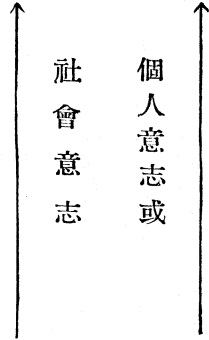 個人意志或
社會意志